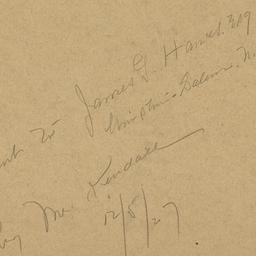 to James G. Hanes, Bldg
Winston-Salem, N.
by Mr Kendall
12/5/27